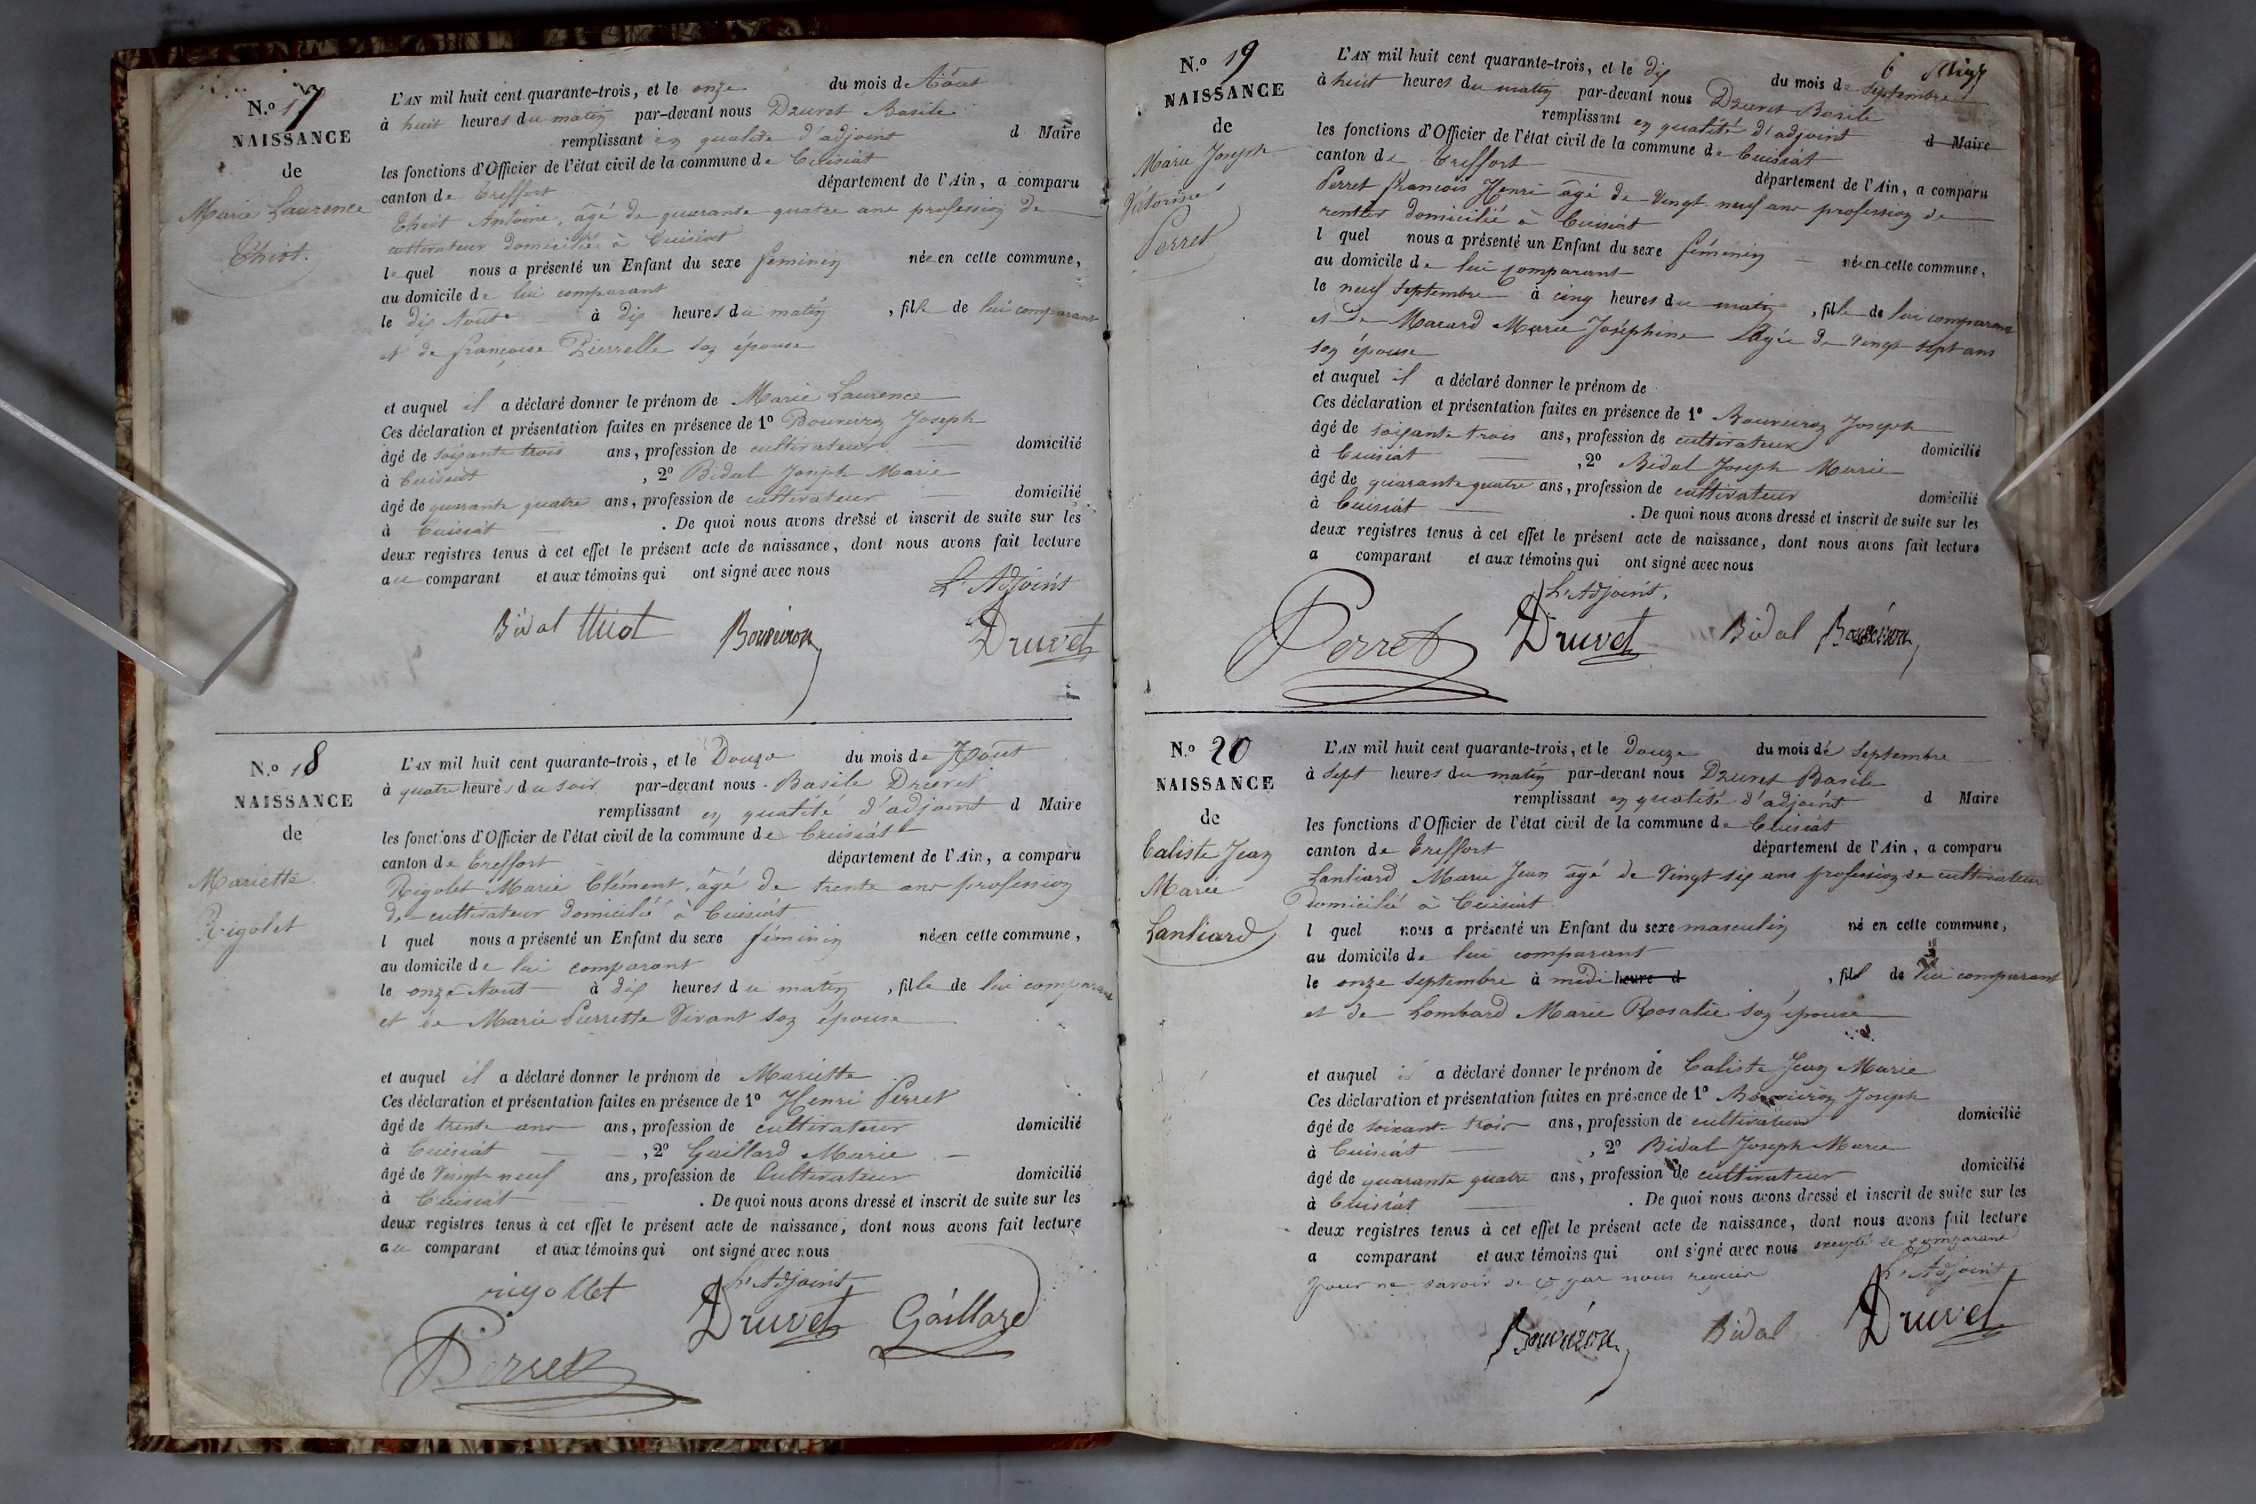 N.o 17
NAISSANCE
de
Marie Laurence
Thiot.
L'AN mil huit cent quarante-trois, et le onze du mois de Août
à huit heures du matin par-devant nous Druvet Basile
remplissant en qualité d'adjoint d Maire
les fonctions d'Officier de l'état civil de la commune de Cuisiat
canton de Treffort département de l'Ain, a comparu
Thiot Antoine, âgé de quarante quatre ans profession de
cultivateur domicilié à Cuisiat
le quel nous a présenté un Enfant du sexe féminin née en cette commune,
au domicile de lui comparant
le dix Août à dix heures du matin, fille de lui comparant
et de françoise Pierrelle son épouse
et auquel il a déclaré donner le prénom de Marie Laurence
Ces déclaration et présentation faites en présence de 1o Bouveiron Joseph
âgé de soixante trois ans, profession de cultivateur domicilié
à Cuisiat, 2o Bidal Joseph Marie
âgé de quarante quatre ans, profession de cultivateur domicilié
à Cuisiat . De quoi nous avons dressé et inscrit de suite sur les
deux registres tenus à cet effet le présent acte de naissance, dont nous avons fait lecture
au comparant et aux témoins qui ont signé avec nous
L'Adjoint
Bidal Thiot Bouveiron Druvet
N.o 18
NAISSANCE
de
Mariette
Rigolet
L'AN mil huit cent quarante-trois, et le Douze du mois de Août
à quatre heures du soir par-devant nous Basile Druvet
remplissant en qualité d'adjoint d Maire
les fonctions d'Officier de l'état civil de la commune de Cuisiat
canton de Treffort département de l'Ain, a comparu
Rigolet Marie Clément, âgé de trente ans profession
de cultivateur domicilié à Cuisiat
l quel nous a présenté un Enfant du sexe féminin née en cette commune,
au domicile de lui comparant
le onze Août à dix heures du matin, fille de lui comparant
et de Marie Pierrette Vivant son épouse
et auquel il a déclaré donner le prénom de Mariette
Ces déclaration et présentation faites en présence de 1o Henri Perret
âgé de trente ans ans, profession de cultivateur domicilié
à Cuisiat, 2o Gaillard Marie
âgé de Vingt neuf ans, profession de Cultivateur domicilié
à Cuisiat . De quoi nous avons dressé et inscrit de suite sur les
deux registres tenus à cet effet le présent acte de naissance, dont nous avons fait lecture
au comparant et aux témoins qui ont signé avec nous
L'Adjoint
rigollet Druvet Gaillard
Perret
6
N.o 19
NAISSANCE
de
Marie Joseph
Victorine
Perret
L'AN mil huit cent quarante-trois, et le dix du mois de Septembre
à huit heures du matin par-devant nous Druvet Basile
remplissant en qualité d'adjoint d Maire
les fonctions d'Officier de l'état civil de la commune de Cuisiat
canton de Treffort département de l'Ain, a comparu
Perret francois Henri âgé de Vingt neuf ans profession de
rentier domicilié à Cuisiat
l quel nous a présenté un Enfant du sexe féminin née en cette commune,
au domicile de lui comparant
le neuf Septembre à cinq heures du matin, fille de lui comparant
et de Macard Marie Joséphine âgée de Vingt sept ans
son épouse
et auquel il a déclaré donner le prénom de
Ces déclaration et présentation faites en présence de 1o Bouveiron Joseph
âgé de soixante trois ans, profession de cultivateur domicilié
à Cuisiat, 2o Bidal Joseph Marie
âgé de quarante quatre ans, profession de cultivateur domicilié
à Cuisiat . De quoi nous avons dressé et inscrit de suite sur les
deux registres tenus à cet effet le présent acte de naissance, dont nous avons fait lecture
a comparant et aux témoins qui ont signé avec nous
L'Adjoint,
Perret Druvet Bidal Bouveiron
N.o 20
NAISSANCE
de
Caliste Jean
Marie
Lantiard
L'AN mil huit cent quarante-trois, et le douze du mois de Septembre
à sept heures du matin par-devant nous Druvet Basile
remplissant en qualité d'adjoint d Maire
les fonctions d'Officier de l'état civil de la commune de Cuisiat
canton de Treffort département de l'Ain, a comparu
Lantiard Marie Jean âgé de Vingt six ans profession de cultivateur
Domicilié à Cuisiat
l quel nous a présenté un Enfant du sexe masculin né en cette commune,
au domicile de lui comparant
le onze septembre à midi heure d, fil de lui comparant
et de Lombard Marie Rosalie son épouse
et auquel il a déclaré donner le prénom de Caliste Jean Marie
Ces déclaration et présentation faites en présence de 1o Bouveiron Joseph
âgé de soixante trois ans, profession de cultivateur domicilié
à Cuisiat, 2o Bidal Joseph Marie
âgé de quarante quatre ans, profession de cultivateur domicilié
à Cuisiat . De quoi nous avons dressé et inscrit de suite sur les
deux registres tenus à cet effet le présent acte de naissance, dont nous avons fait lecture
a comparant et aux témoins qui ont signé avec nous excepté le comparant
pour ne savoir de ce par nous requis
L'Adjoint
Bouveiron Bidal Druvet